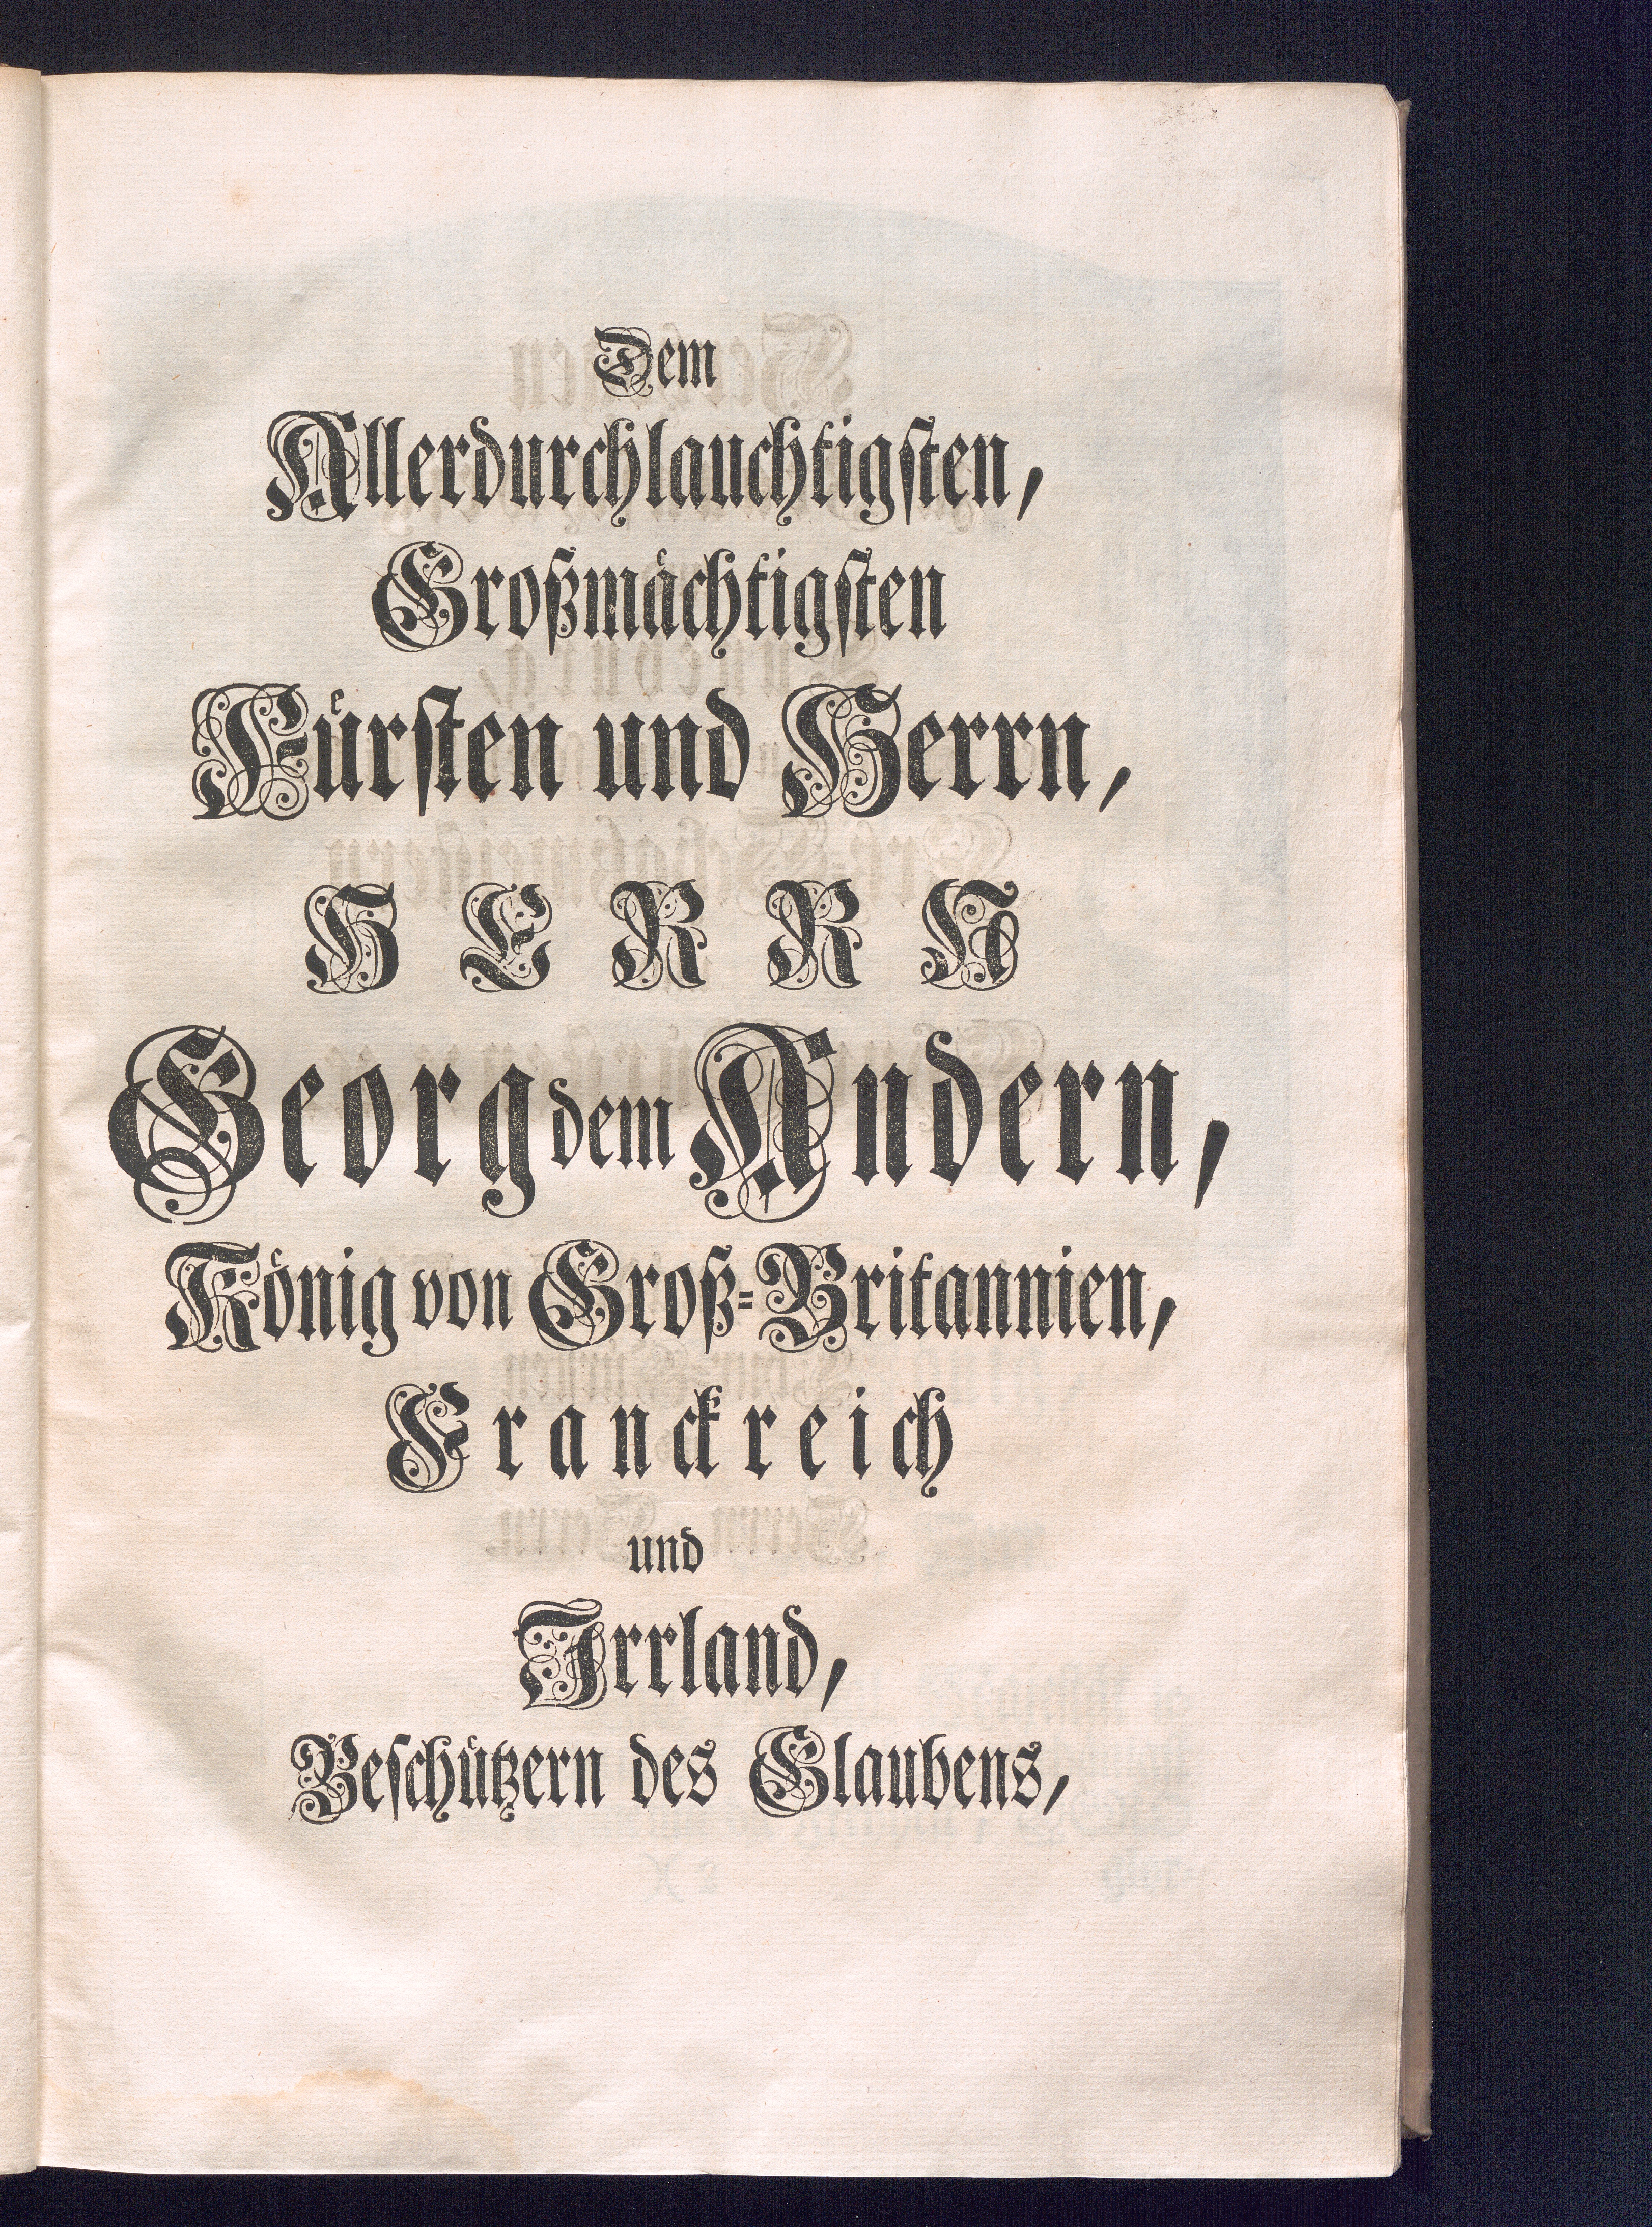 Dem
Allerdurchlauchtigsten,
Großmächtigsten
Fürsten und Herrn,
HERRN
Georg dem Andern,
König von Groß-Britannien,
Franckreich
und
Irrland,
Beschützern des Glaubens,